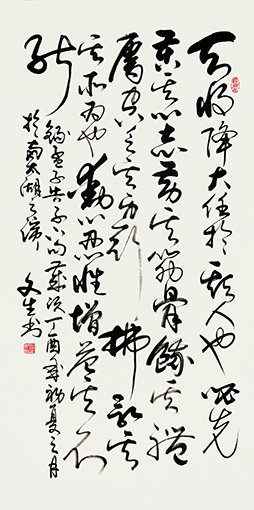 天将降大任於斯人也必先
苦其心志劳其筋骨餓其體
膚空乏其身行拂亂其
所为也動心忍性增益其所不
能
錄孟子告子句歲次丁酉年初夏之月
於南太湖之濱 文生书